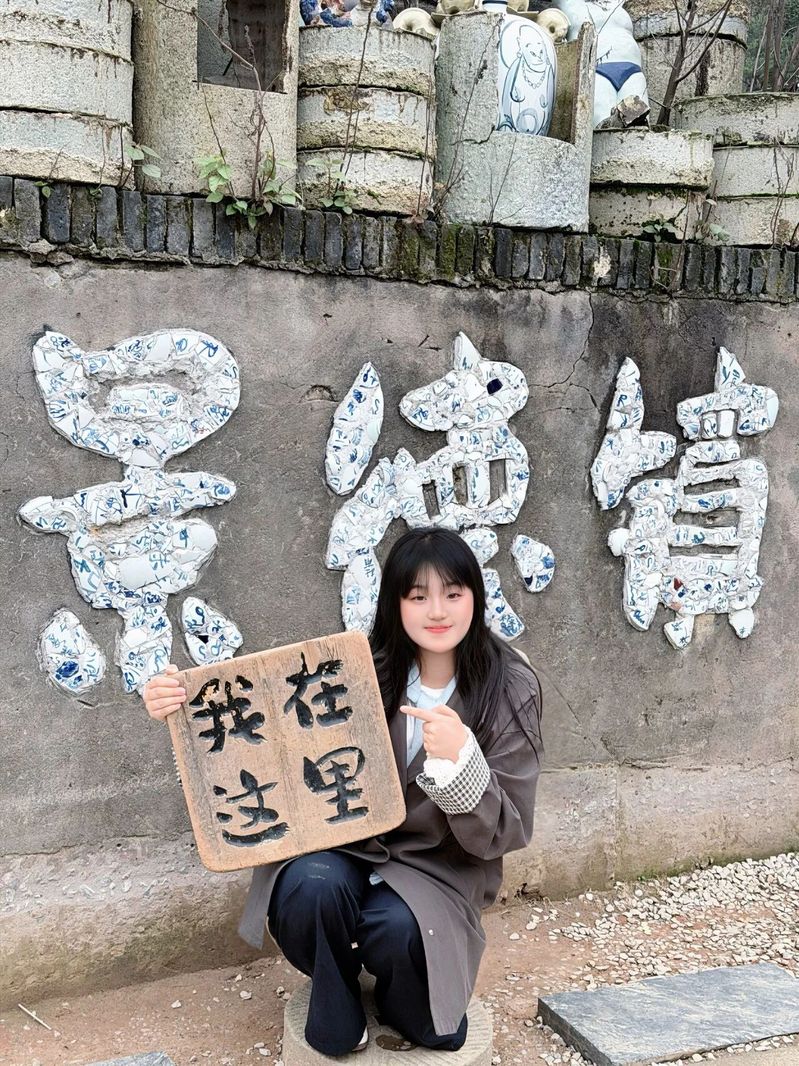 景德镇
我在
这里